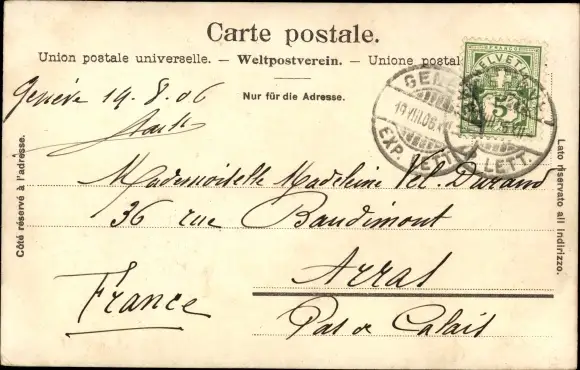 Carte postale.
Union postale universelle. — Weltpostverein. — Unione postal
Nur für die Adresse.
Genève 19.8.06
Côté réservé à l'adresse.
Lato riservato all indirizzo.
FRANCO
HELVETIA
5
GEN
19.VIII.06.
EXP. LETT.
EXP. LETT.
Mademoiselle Madeleine Durand
36 rue Baudimont
Arras
France
Pas de Calais